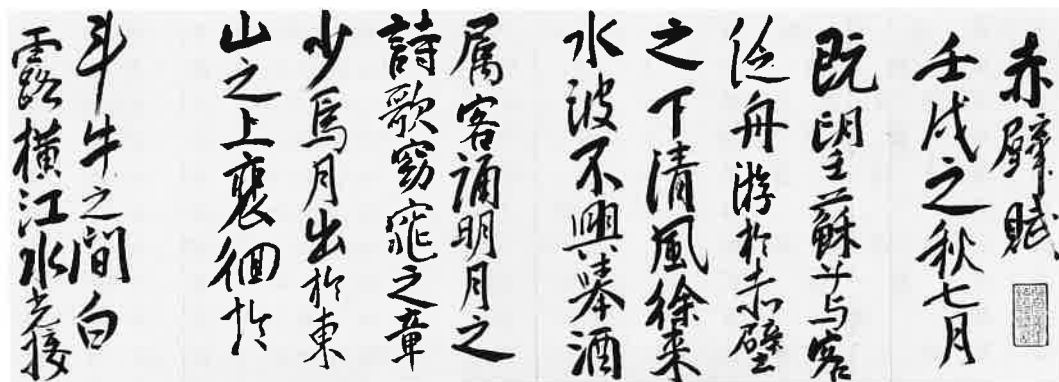 赤壁賦
壬戌之秋七月
既望蘇子与客
泛舟游於赤壁
之下清風徐来
水波不興舉酒
属客誦明月之
詩歌窈窕之章
少焉月出於東
山之上裵徊於
斗牛之間白
露横江水光接